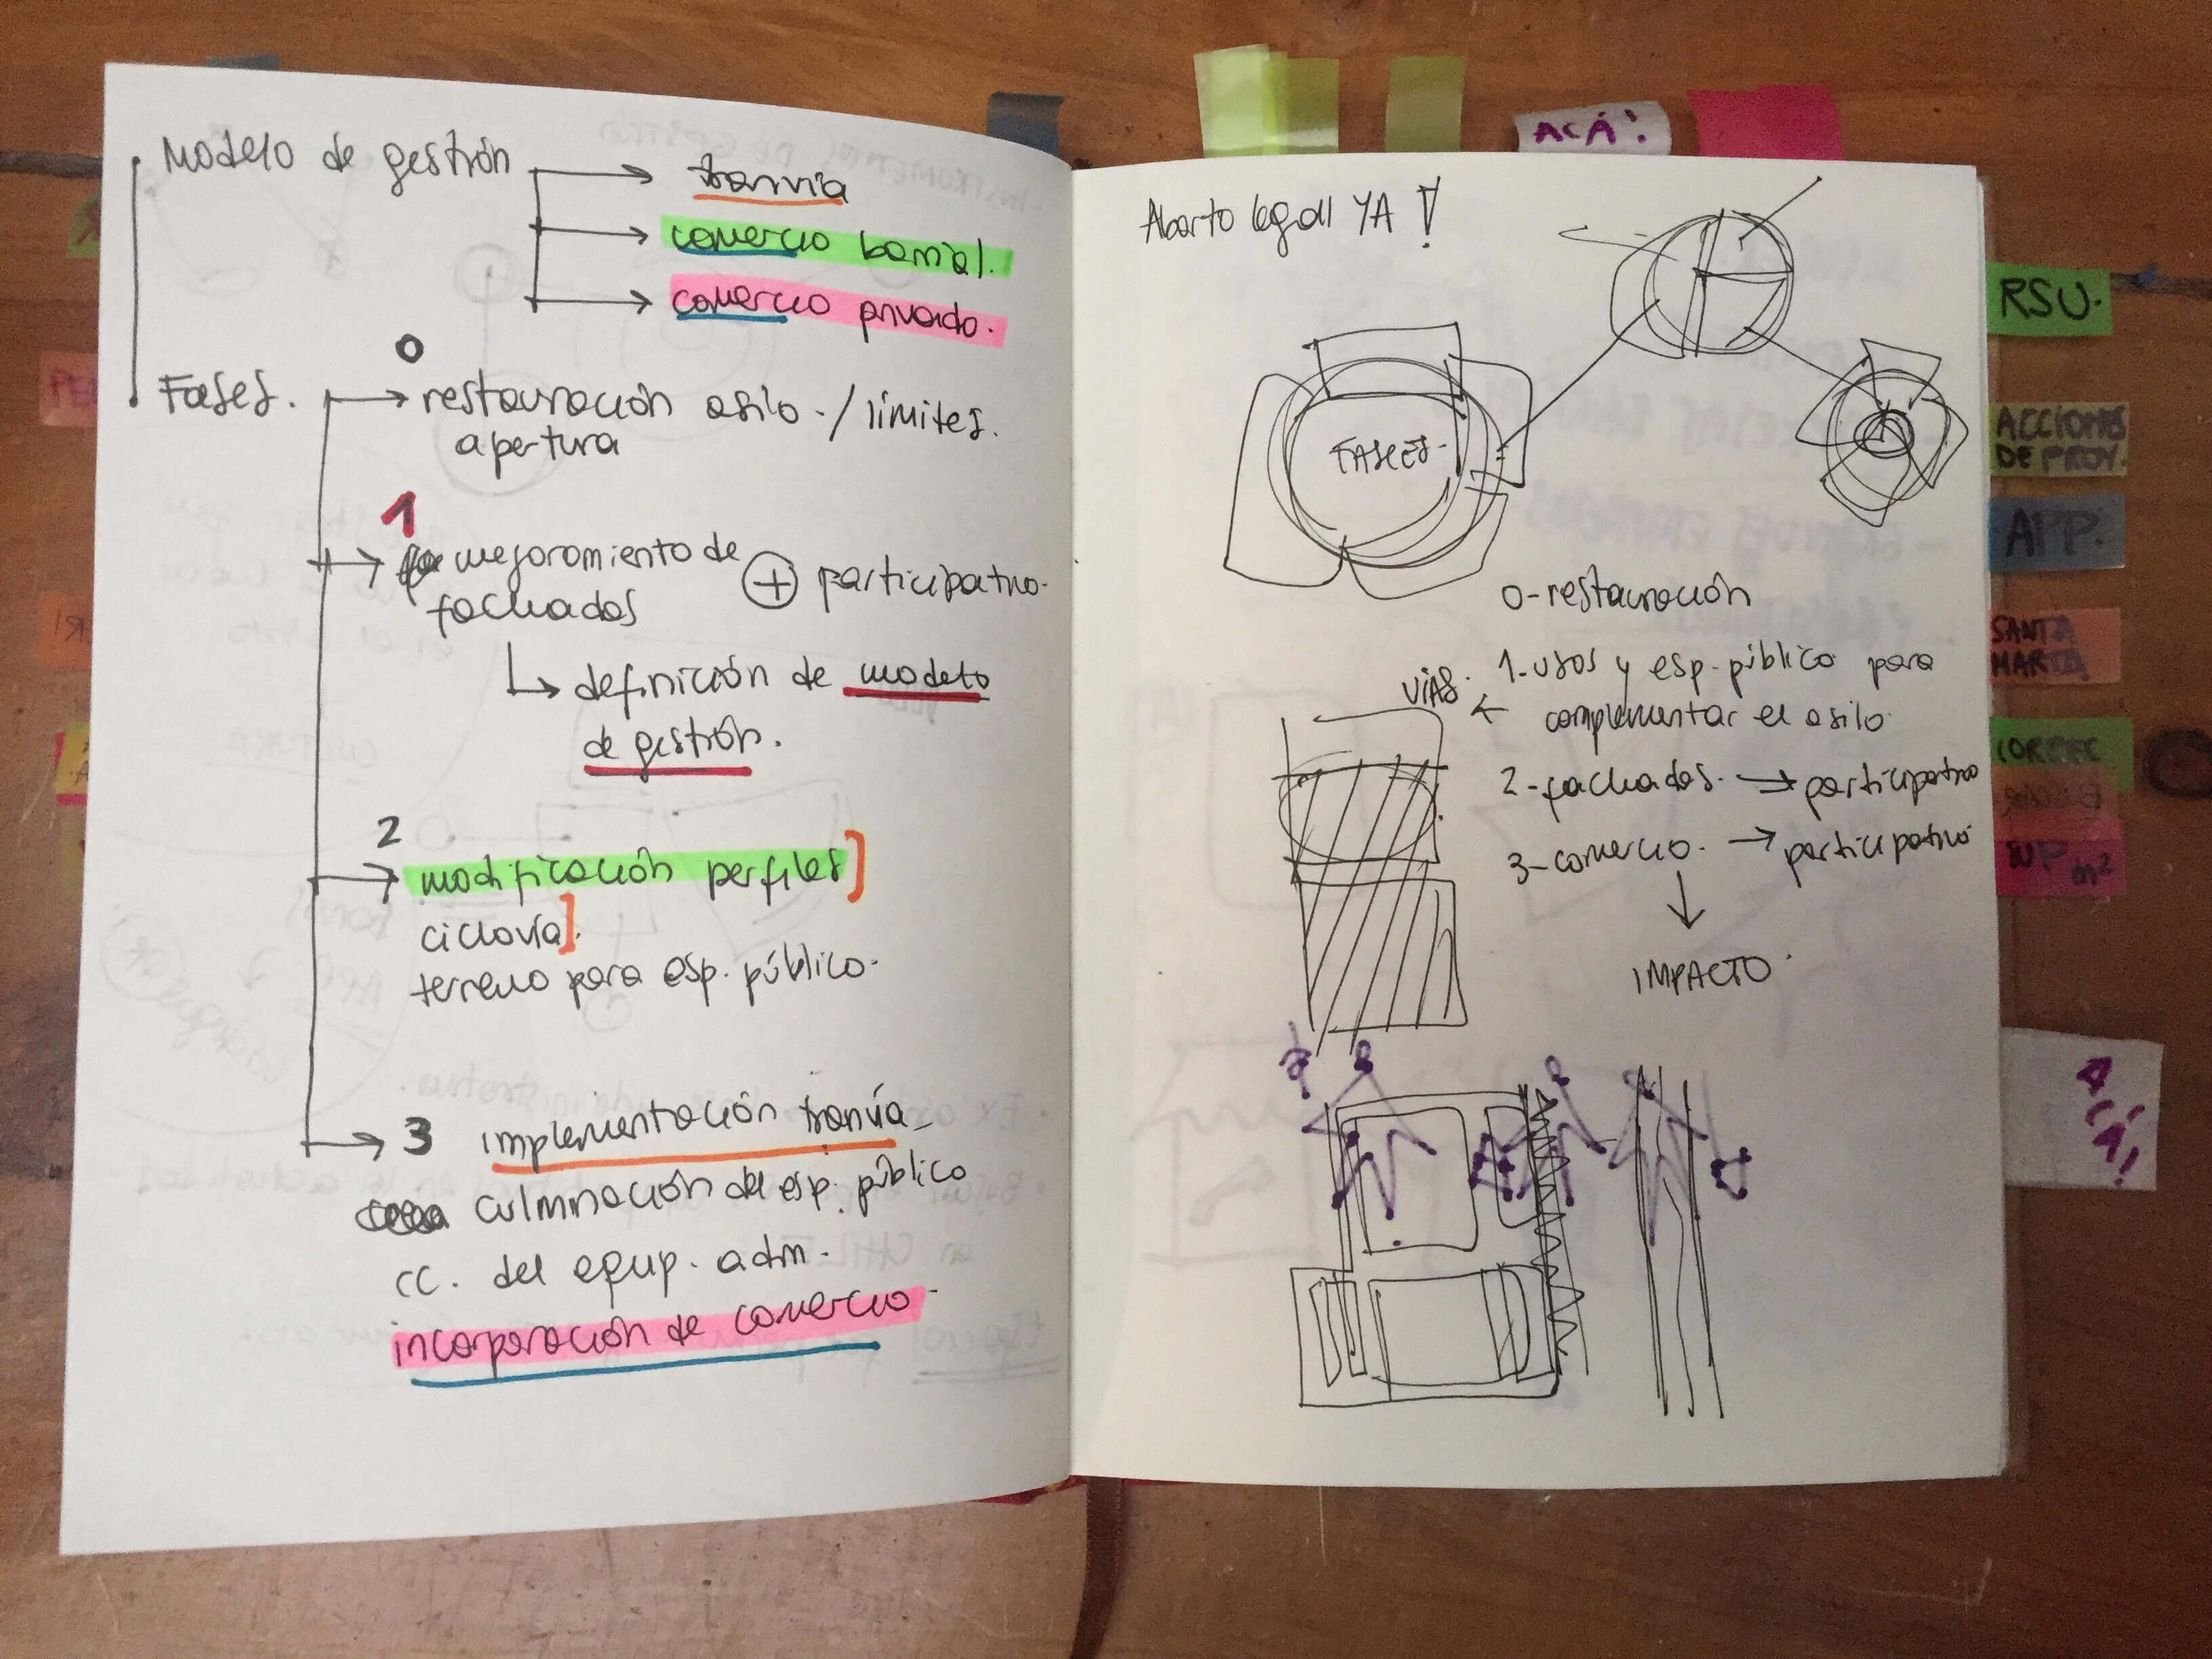 Modelo de gestión
tranvía
comercio barrial.
comercio privado.
Fases.
0
restauración asilo. / límites.
apertura
1
mejoramiento de
fachadas
+ participativo.
definición de modelo
de gestión.
2
modificación perfiles]
ciclovía].
terreno para esp. público.
3 implementación tranvía
culminación del esp. público
cc. del equip. adm.
incorporación de comercio.
ACÁ!
Aborto legal YA!
FASES.
0-restauración
VÍAS. 1-usos y esp. público para
complementar el asilo.
2-fachadas. → participativo
3-comercio. → participativo
IMPACTO.
RSU.
ACCIONES
DE PROY.
APP.
SANTA
MARTA
SUP
m²
ACÁ!